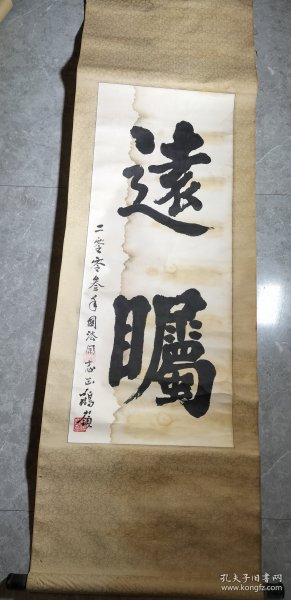 遠
矚
二零零叁年國洛同志正
孔夫子旧书网
www.kongfz.com